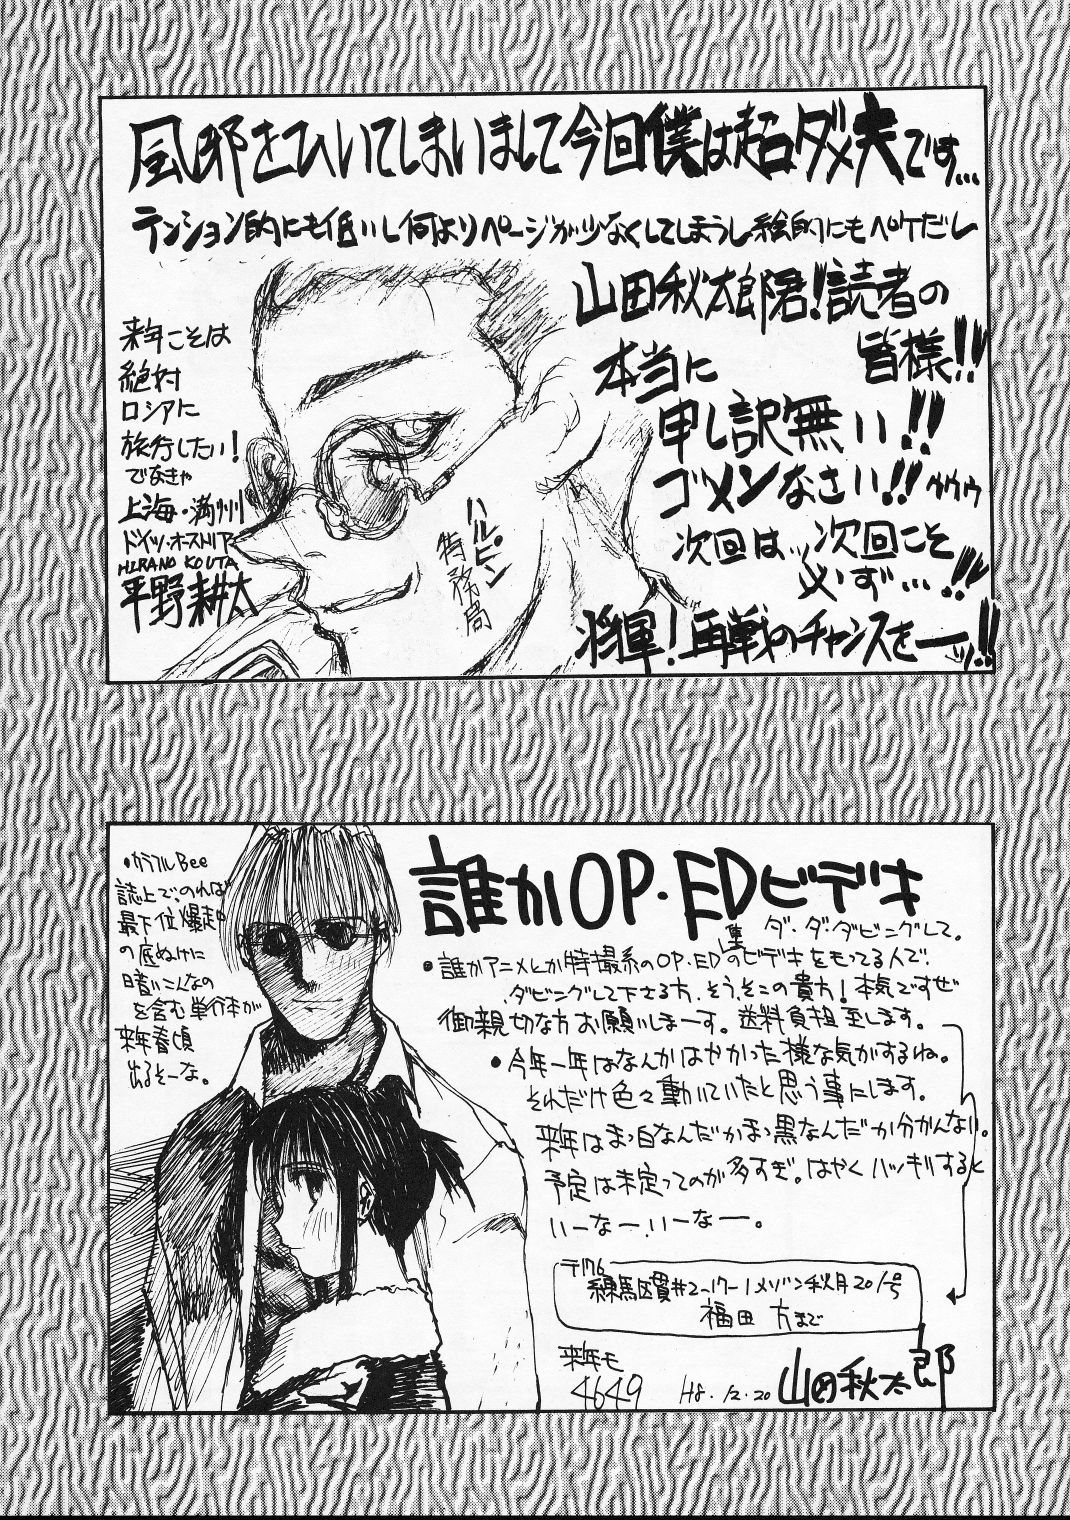 風邪をひいてしまいまして今回僕は超ダメ夫です…
テンション的にも低いし何よりページが少なくしてしまうし絵的にもペケだし
山田秋太郎君!読者の
皆様!!
本当に
申し訳無い!!
ゴメンなさい!!ゥゥゥ
次回は…次回こそ
必ず…!!
将軍!再戦のチャンスをーッ!!
来年こそは
絶対
ロシアに
旅行したい!
でなきゃ
上海・満州
ドイツ・オーストリア
HIRANO KOUTA
平野耕太
ハルピン
特務局
誰かOP・EDビデキ
ダ・ダ・ダビングして。
・誰かアニメとか特撮系のOP・ED集のビデキをもってる人で、
ダビングして下さる方、そう、そこの貴方!本気ですぜ
御親切な方お願いしまーす。送料負担至します。
・今年一年はなんかはやかった様な気がするね。
それだけ色々動いていたと思う事にします。
来年はまっ白なんだかまっ黒なんだか分かんない。
予定は未定ってのが多すぎ。はやくハッキリすると
いーなーいーなー。
〒176
練馬区貫井2-17-1メゾン秋月201号
福田方まで
来年モ
4649
H8.12.20
山田秋太郎
・カラフルBee
誌上で、のれば
最下位爆走中
の底ぬけに
暗いこんなの
を含む単行本が
来年春頃
出るそーな。